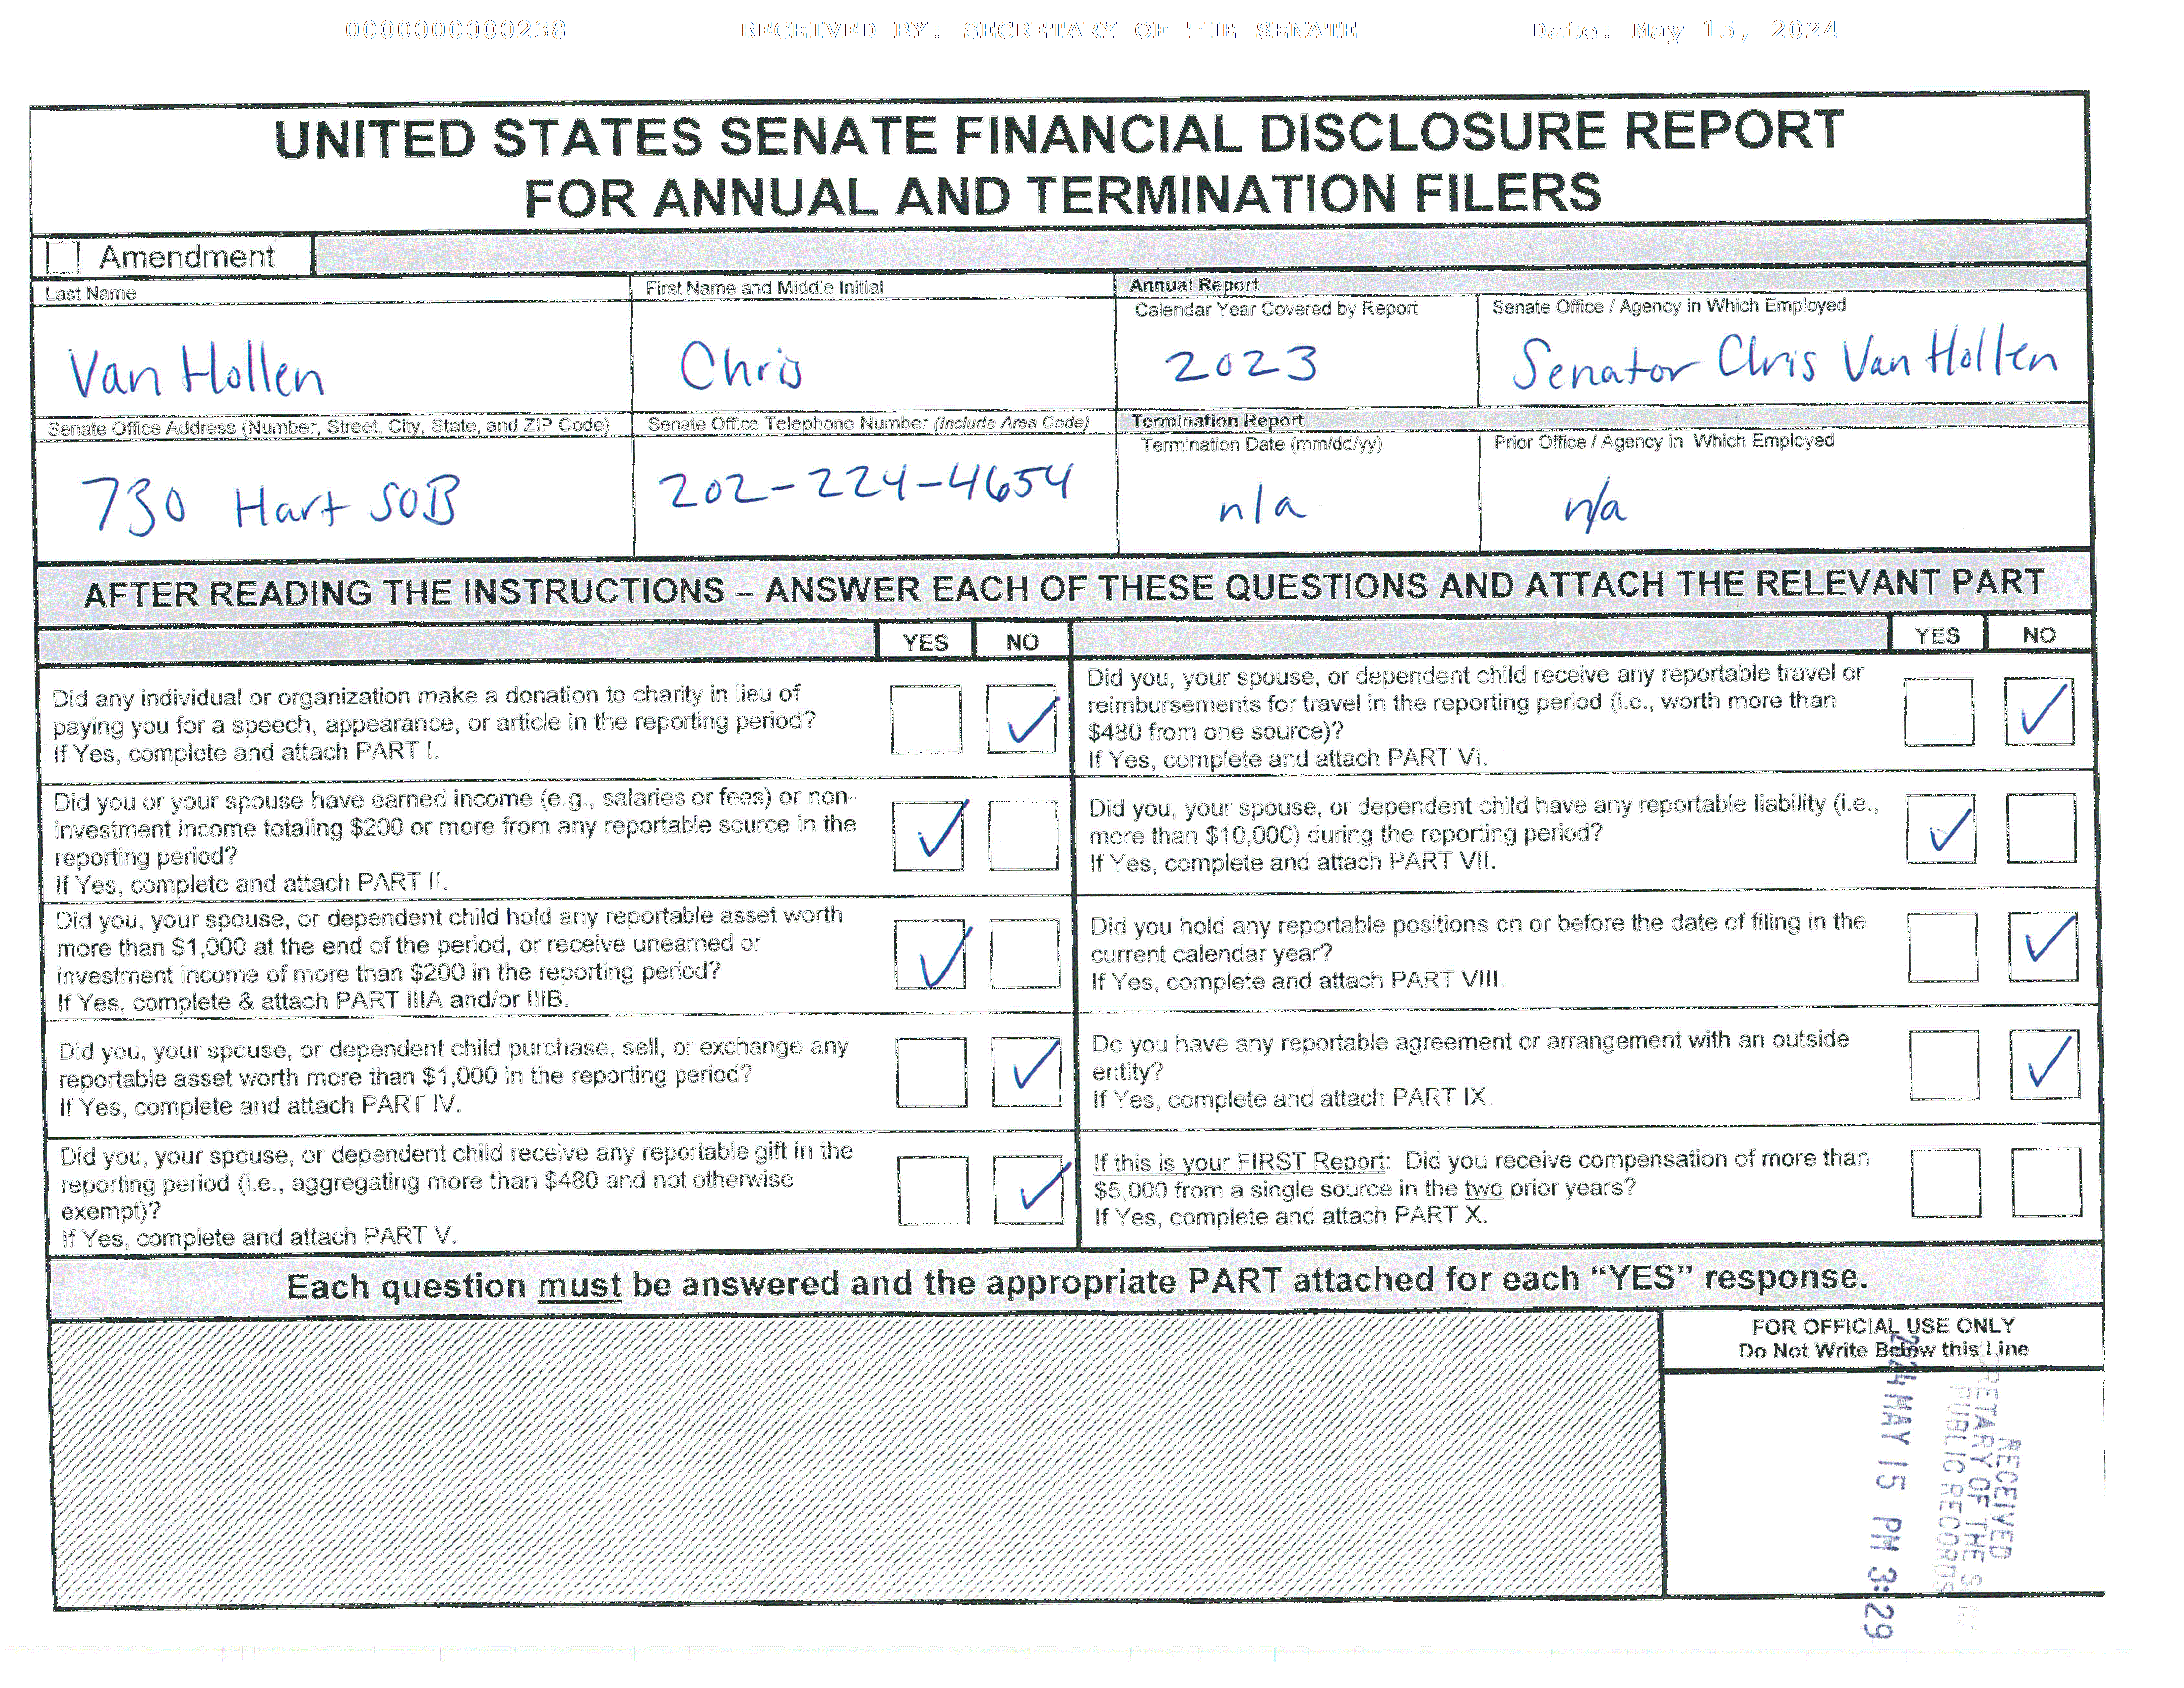 0000000000238 RECEIVED BY: SECRETARY OF THE SENATE Date: May 15, 2024
UNITED STATES SENATE FINANCIAL DISCLOSURE REPORT
FOR ANNUAL AND TERMINATION FILERS
Amendment
Last Name
Van Hollen
First Name and Middle Initial
Chris
Annual Report
Calendar Year Covered by Report
2023
Senate Office / Agency in Which Employed
Senator Chris Van Hollen
Senate Office Address (Number, Street, City, State, and ZIP Code)
730 Hart SOB
Senate Office Telephone Number (Include Area Code)
202-224-4654
Termination Report
Termination Date (mm/dd/yy)
n/a
Prior Office / Agency in Which Employed
n/a
AFTER READING THE INSTRUCTIONS – ANSWER EACH OF THESE QUESTIONS AND ATTACH THE RELEVANT PART
YES NO
Did any individual or organization make a donation to charity in lieu of
paying you for a speech, appearance, or article in the reporting period?
If Yes, complete and attach PART I.
Did you or your spouse have earned income (e.g., salaries or fees) or non-
investment income totaling $200 or more from any reportable source in the
reporting period?
If Yes, complete and attach PART II.
Did you, your spouse, or dependent child hold any reportable asset worth
more than $1,000 at the end of the period, or receive unearned or
investment income of more than $200 in the reporting period?
If Yes, complete & attach PART IIIA and/or IIIB.
Did you, your spouse, or dependent child purchase, sell, or exchange any
reportable asset worth more than $1,000 in the reporting period?
If Yes, complete and attach PART IV.
Did you, your spouse, or dependent child receive any reportable gift in the
reporting period (i.e., aggregating more than $480 and not otherwise
exempt)?
If Yes, complete and attach PART V.
YES NO
Did you, your spouse, or dependent child receive any reportable travel or
reimbursements for travel in the reporting period (i.e., worth more than
$480 from one source)?
If Yes, complete and attach PART VI.
Did you, your spouse, or dependent child have any reportable liability (i.e.,
more than $10,000) during the reporting period?
If Yes, complete and attach PART VII.
Did you hold any reportable positions on or before the date of filing in the
current calendar year?
If Yes, complete and attach PART VIII.
Do you have any reportable agreement or arrangement with an outside
entity?
If Yes, complete and attach PART IX.
If this is your FIRST Report: Did you receive compensation of more than
$5,000 from a single source in the two prior years?
If Yes, complete and attach PART X.
Each question must be answered and the appropriate PART attached for each “YES” response.
FOR OFFICIAL USE ONLY
Do Not Write Below this Line
RECEIVED
OF THE
PUBLIC RECORDS
MAY 15 PM 3:29